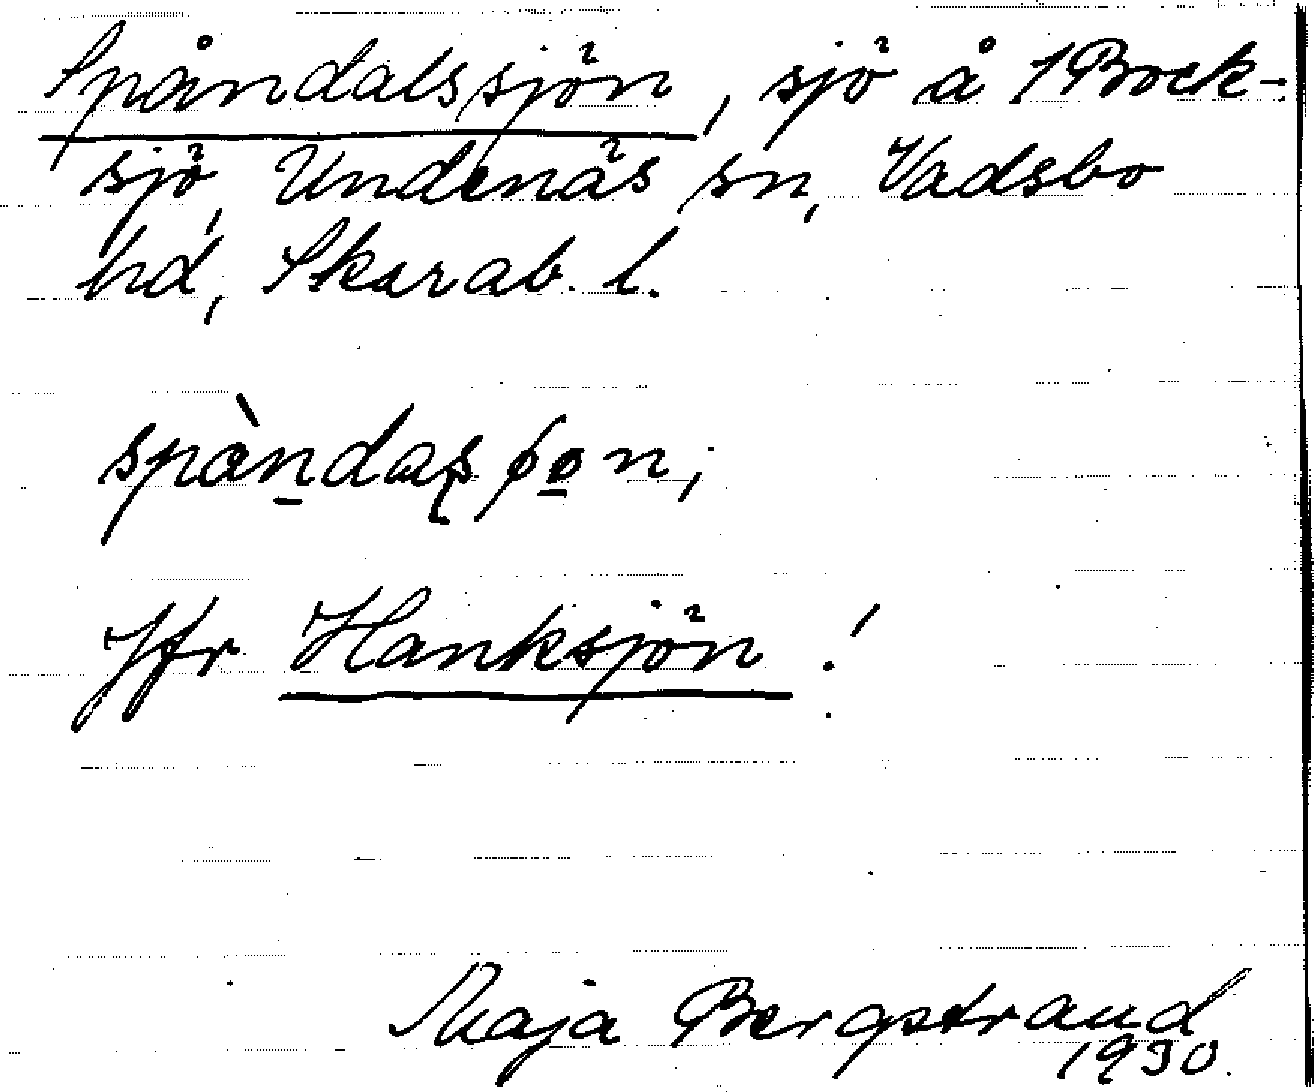 Spåndalssjön, sjö å 1 Bock-
sjö, Undenäs sn, Vadsbo
hd, Skarab. l.
Jfr Hanksjön !
Maja Bergstrand
1930.